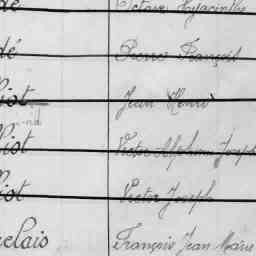 Octave Hyacinthe
dé Pierre François
iot Jean Henri
iot Victor Alphonse Joseph
iot Victor Joseph
elais François Jean Marie